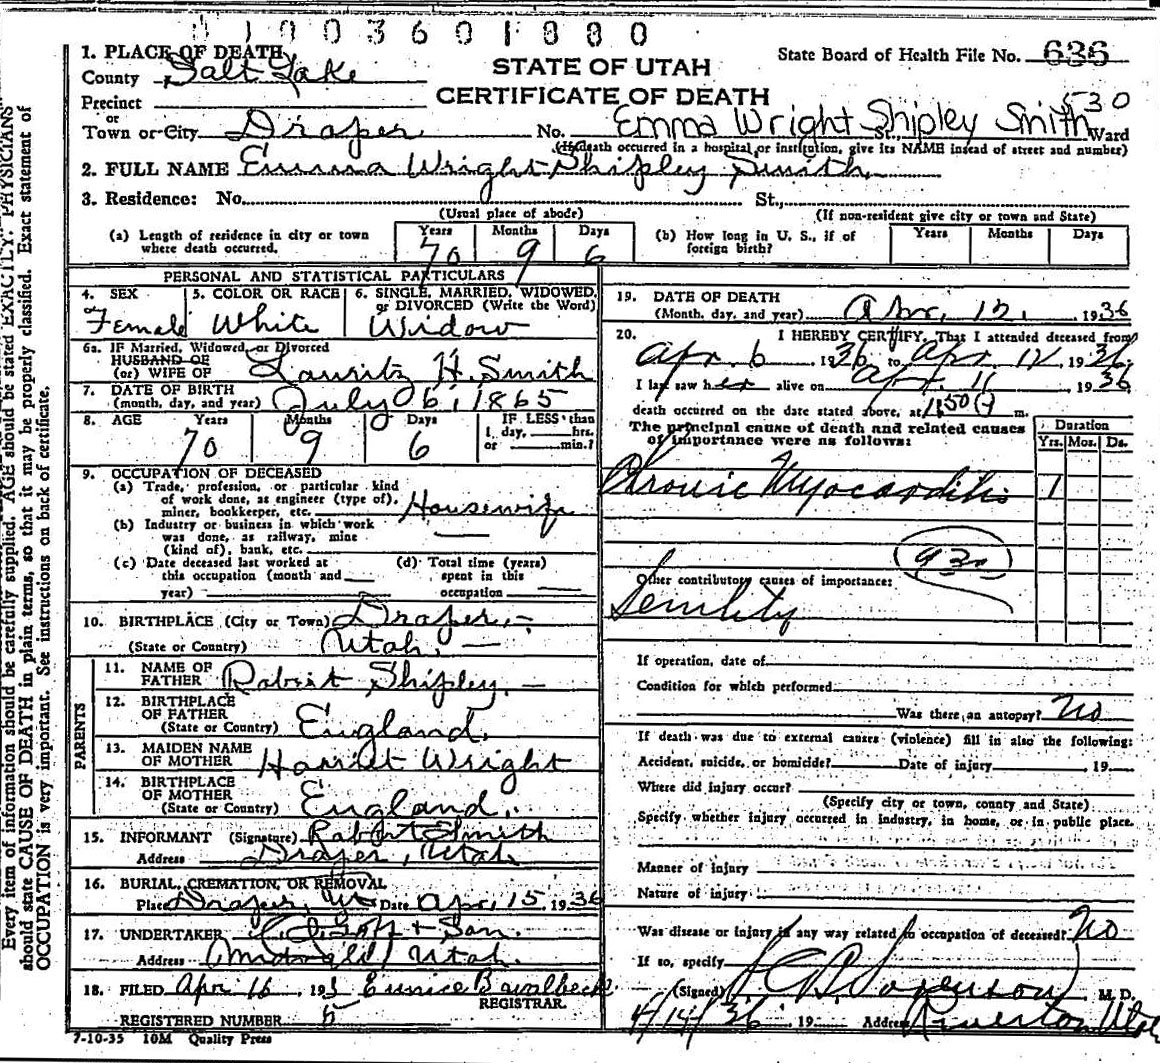 1003601880
1. PLACE OF DEATH
County Salt Lake
STATE OF UTAH
State Board of Health File No. 636
CERTIFICATE OF DEATH
530
Precinct
or
Town or City Draper No. Emma Wright Shipley Smith St., Ward
(If death occurred in a hospital or institution, give its NAME instead of street and number)
2. FULL NAME Emma Wright Shipley Smith
3. Residence: No. St.,
(Usual place of abode) (If non-resident give city or town and State)
(a) Length of residence in city or town where death occurred. Years 70 Months 9 Days 6
(b) How long in U. S., if of foreign birth? Years Months Days
PERSONAL AND STATISTICAL PARTICULARS
4. SEX Female
5. COLOR OR RACE White
6. SINGLE, MARRIED, WIDOWED, or DIVORCED (Write the Word) Widow
6a. IF Married, Widowed, or Divorced
HUSBAND OF
(or) WIFE OF Lauritz H. Smith
7. DATE OF BIRTH
(month, day, and year) July 6, 1865
8. AGE Years 70 Months 9 Days 6
IF LESS than
1 day, hrs.
or min.?
9. OCCUPATION OF DECEASED
(a) Trade, profession, or particular kind
of work done, as engineer (type of),
miner, bookkeeper, etc. Housewife
(b) Industry or business in which work
was done, as railway, mine
(kind of), bank, etc.
(c) Date deceased last worked at
this occupation (month and
year)
(d) Total time (years)
spent in this
occupation
10. BIRTHPLACE (City or Town) Draper,
(State or Country) Utah,
PARENTS
11. NAME OF FATHER Robert Shipley
12. BIRTHPLACE OF FATHER
(State or Country) England.
13. MAIDEN NAME OF MOTHER Harriet Wright
14. BIRTHPLACE OF MOTHER
(State or Country) England.
15. INFORMANT (Signature) Robert Smith
Address Draper, Utah
16. BURIAL, CREMATION, OR REMOVAL
Place Draper, Ut Date Apr, 15, 1936
17. UNDERTAKER Goff & Son.
Address Midvale, Utah.
18. FILED Apr 16, 193 Eunice B
REGISTRAR.
REGISTERED NUMBER 5
7-10-35 10M Quality Press
19. DATE OF DEATH
(Month, day, and year) Apr. 12, 1936
20. I HEREBY CERTIFY, That I attended deceased from
Apr. 6 1936 to Apr. 12 1936
I last saw her alive on Apr. 11 1936
death occurred on the date stated above, at m.
The principal cause of death and related causes
of importance were as follows:
Duration
Yrs. Mos. Ds.
Chronic Myocarditis 1
930
Other contributory causes of importance:
Senility
If operation, date of
Condition for which performed
Was there an autopsy? No
If death was due to external causes (violence) fill in also the following:
Accident, suicide, or homicide? Date of injury 19
Where did injury occur?
(Specify city or town, county and State)
Specify whether injury occurred in industry, in home, or in public place.
Manner of injury
Nature of injury
Was disease or injury in any way related to occupation of deceased? No
If so, specify
(Signed) Sorenson, M. D.
4/14/36 19 Address Riverton Utah
Every item of information should be carefully supplied. AGE should be stated EXACTLY. PHYSICIANS
should state CAUSE OF DEATH in plain terms, so that it may be properly classified. Exact statement of
OCCUPATION is very important. See instructions on back of certificate.